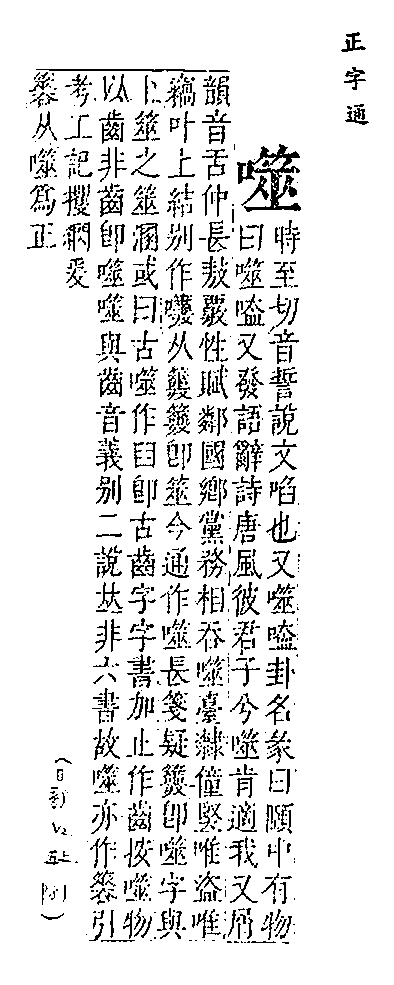 正字通
噬
時至切音誓說文啗也又噬嗑卦名彖曰頤中有物
曰噬嗑又發語辭詩唐風彼君子兮噬肯適我又屑
韻音舌仲長敖覈性賦鄰國鄉黨務相吞噬臺隸僮竪唯盜唯
竊叶上結別作 从 即筮今通作噬長箋疑 即噬字與
卜筮之筮溷或曰古噬作臼即古齒字字書加止作齒按噬物
以齒非齒即噬噬與齒音義別二說𠀤非六書故噬亦作 引
考工記攫閷爰
 从噬為正